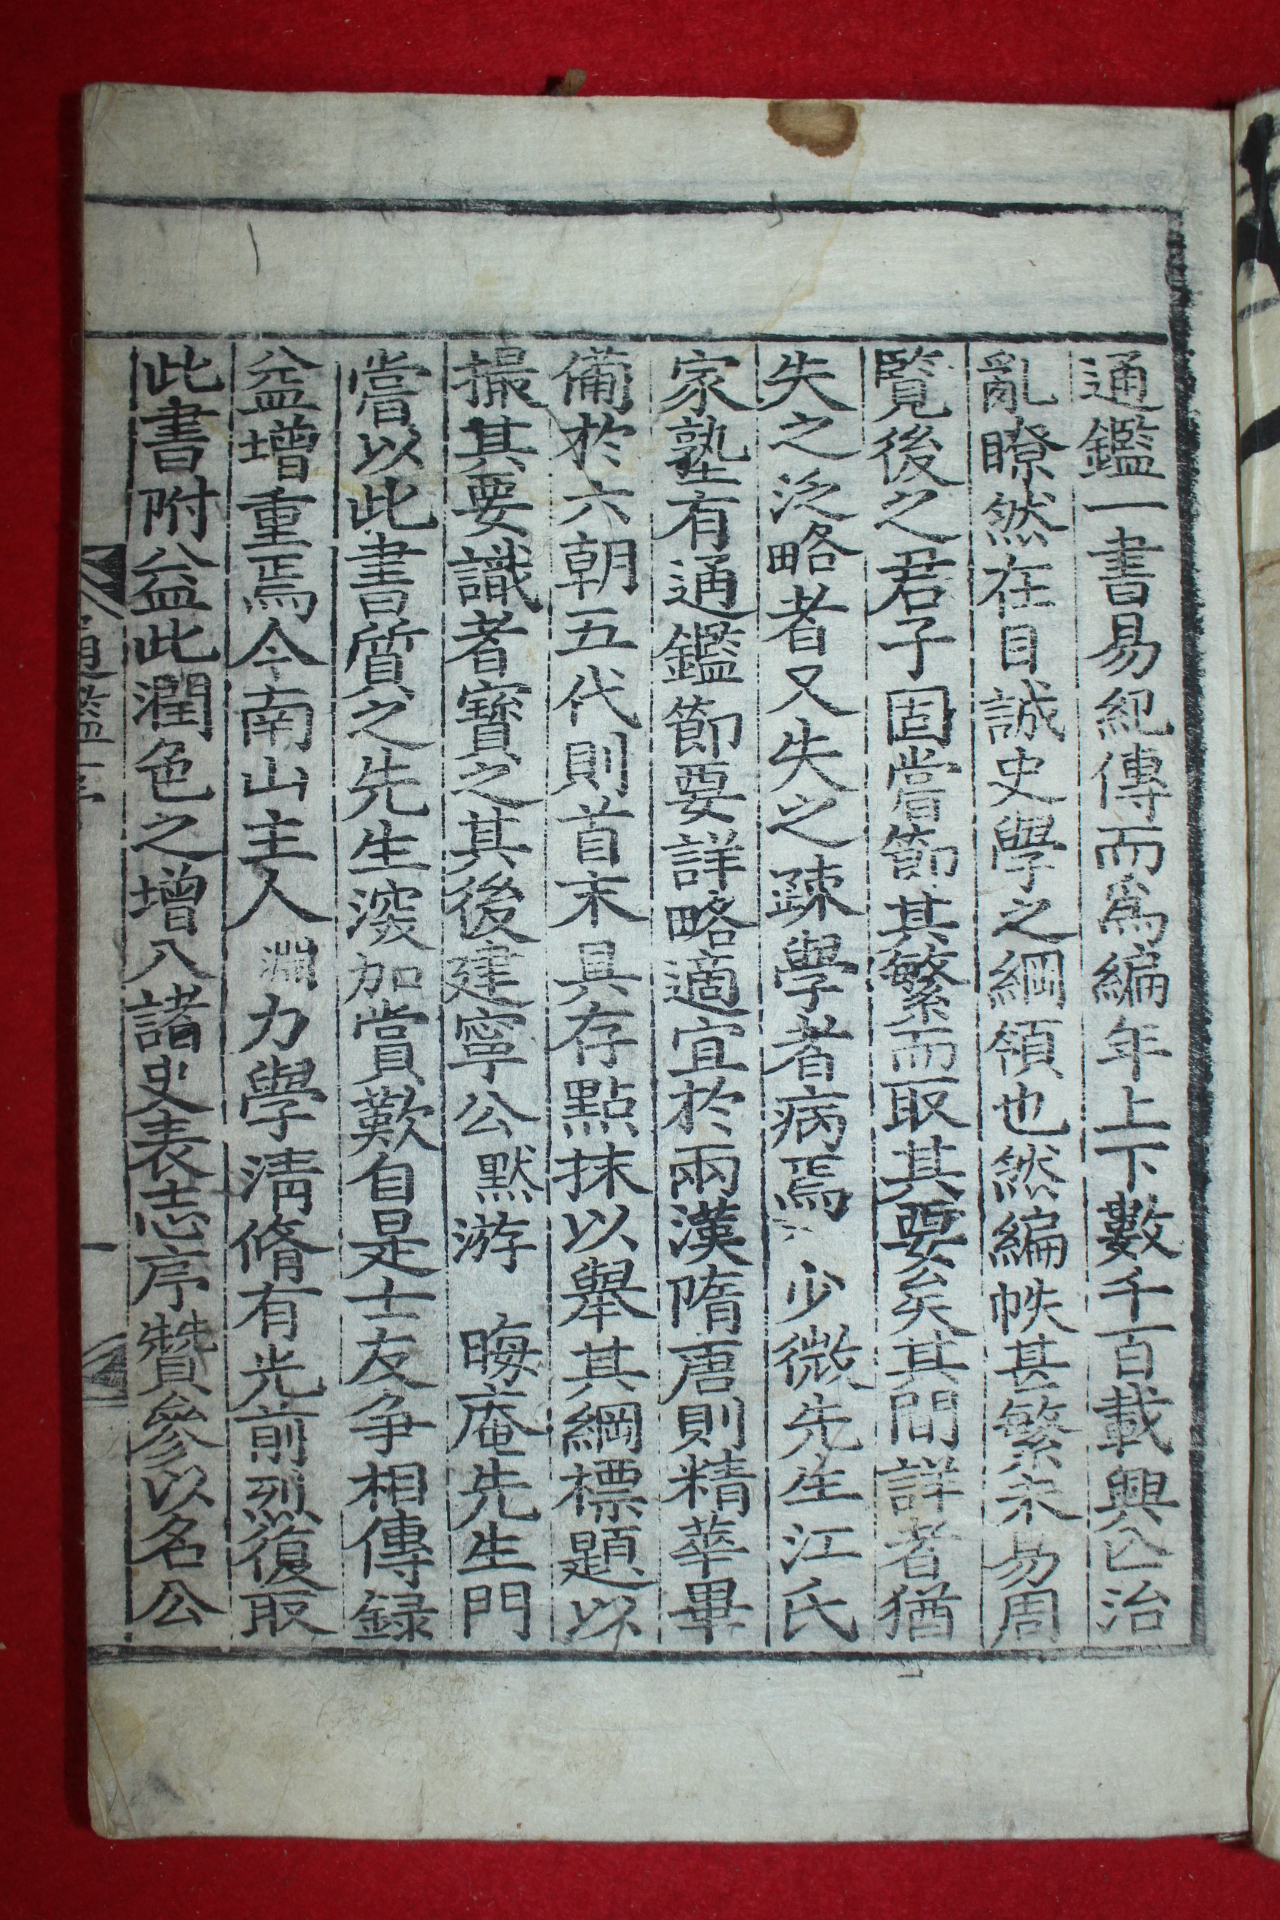 通鑑一書易紀傳而爲編年上下數千百載興亾治
亂瞭然在目誠史學之綱領也然編帙甚繁未易周
覽後之君子固嘗節其繁而取其要矣其間詳者猶
失之泛略者又失之疎學者病焉 少微先生江氏
家塾有通鑑節要詳略適宜於兩漢隋唐則精華畢
備於六朝五代則首末具存點抹以擧其綱標題以
撮其要識者寶之其後建寧公默游 晦庵先生門
嘗以此書質之先生深加賞歎自是士友争相傳録
益增重焉今南山主人淵力學淸脩有光前烈復取
此書附益此潤色之增入諸史表志序贊參以名公
通鑑序
一